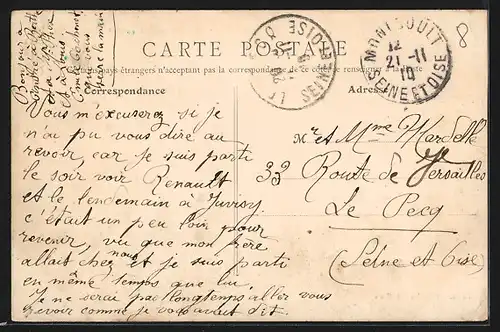 CARTE POSTALE
Tous les pays étrangers n'acceptant pas la correspondance de ce côté, se renseigner à la poste
Correspondance
Adresse
Vous m'excuserez si je
n'ai pu vous dire au
revoir, car je suis parti
le soir voir Renault
et le lendemain à Juvisy
c'était un peu loin pour
revenir, vu que mon père
allait chez nous et je suis parti
en même temps que lui
Je ne serai pas longtemps aller vous
revoir comme je vous avait dit.
Mr et Mme Hardelle
33 Route de Versailles
Le Pecq
(Seine et Oise)
MONTSOULT
12
21-11
10
SEINE ET OISE
LE
SEINE ET OISE
8
Bonjour à